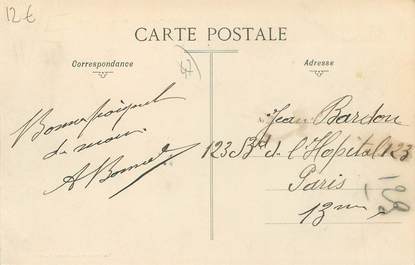 12€
CARTE POSTALE
Correspondance
Adresse
Bonne poignet
de main
A Bonnel
Jean Bardon
123 Bd de l'Hopital 123
Paris
13me